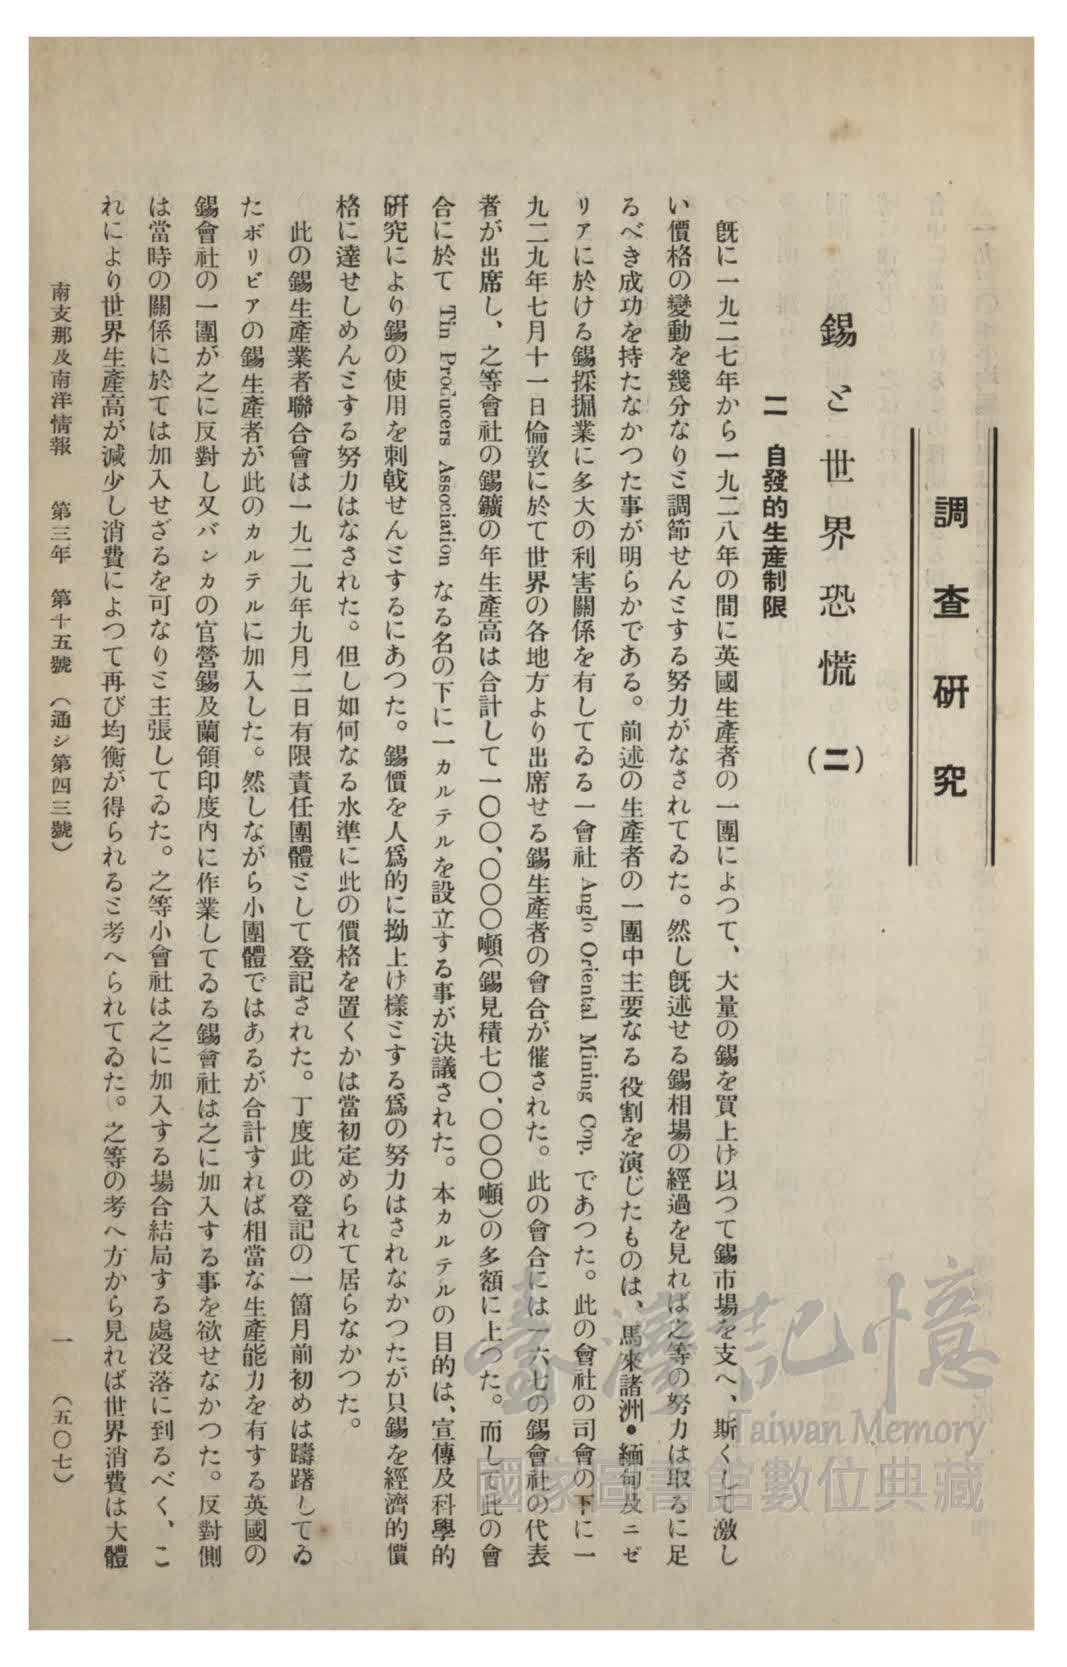 調査研究
錫と世界恐慌 (二)
二 自發的生產制限
旣に一九二七年から一九二八年の間に英國生產者の一團によつて、大量の錫を買上げ以つて錫市場を支へ、斯くして激し
い價格の變動を幾分なりミ調節せんミする努力がなされてゐた。然し旣述せる錫相場の經過を見れば之等の努力は取るに足
るべき成功を持たなかつた事が明らかである。前述の生產者の一團中主要なる役割を演じたものは、馬來諸洲•緬甸及ニゼ
リアに於ける錫採掘業に多大の利害關係を有してゐる一會社 Anglo Oriental Mining Cop. であつた。此の會社の司會の下に一
九二九年七月十一日倫敦に於て世界の各地方より出席せる錫生產者の會合が催された。此の會合には一六七の錫會社の代表
者が出席し、之等會社の錫鑛の年生產高は合計して一〇〇、〇〇〇噸(錫見積七〇、〇〇〇噸)の多額に上つた。而して此の會
合に於て Tin Producers Association なる名の下に一カルテルを設立する事が決議された。本カルテルの目的は、宣傳及科學的
研究により錫の使用を刺戟せんミするにあつた。錫價を人爲的に拗上げ樣ミする爲の努力はされなかつたが只錫を經濟的價
格に達せしめんミする努力はなされた。但し如何なる水準に此の價格を置くかは當初定められて居らなかつた。
此の錫生產業者聯合會は一九二九年九月二日有限責任團體ミして登記された。丁度此の登記の一箇月前初めは躊躇してゐ
たボリビアの錫生產者が此のカルテルに加入した。然しながら小團體ではあるが合計すれば相當な生產能力を有する英國の
錫會社の一團が之に反對し又バンカの官營錫及蘭領印度內に作業してゐる錫會社は之に加入する事を欲せなかつた。反對側
は當時の關係に於ては加入せざるを可なりミ主張してゐた。之等小會社は之に加入する場合結局する處沒落に到るべく、こ
れにより世界生產高が減少し消費によつて再び均衡が得られるミ考へられてゐた。之等の考へ方から見れば世界消費は大體
南支那及南洋情報 第三年 第十五號 (通シ第四三號) 一 (五〇七)
臺灣記憶
Taiwan Memory
國家圖書館數位典藏